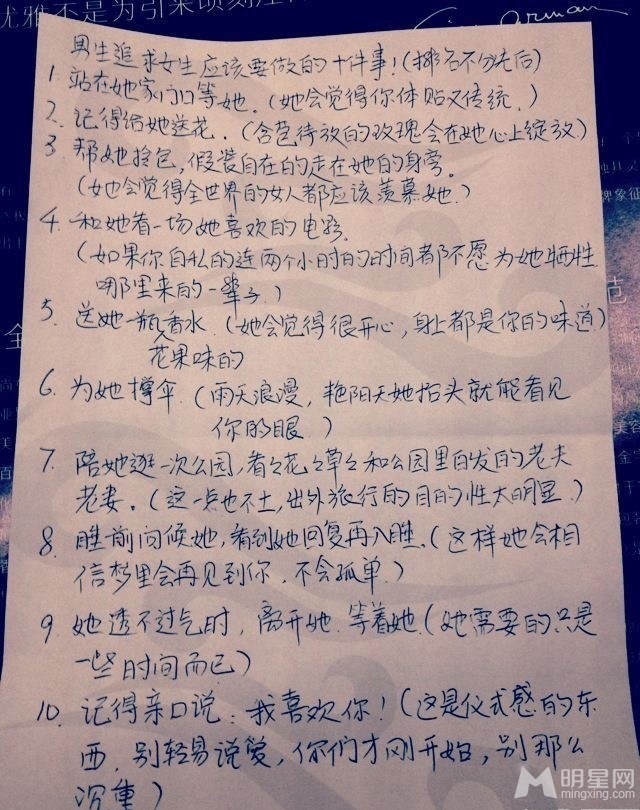 优雅不是为引来顷刻注
男生追求女生应该要做的十件事!(排名不分先后)
1. 站在她家门口等她.(她会觉得你体贴又传统.)
2. 记得给她送花.(含苞待放的玫瑰会在她心上绽放)
3. 帮她拎包,假装自在的走在她的身旁。
(女她会觉得全世界的女人都应该羡慕她.)
4. 和她看一场她喜欢的电影.
(如果你自私的连两个小时的时间都不愿为她牺牲
哪里来的一辈子.)
5. 送她一瓶香水.(她会觉得很开心,身上都是你的味道)
花果味的
6. 为她撑伞.(雨天浪漫,艳阳天她抬头就能看见
你的眼.)
7. 陪她逛一次公园,看々花々草々和公园里白发的老夫
老妻.(这一点也不土,出外旅行的目的性太明显.)
8. 睡前问候她,看到她回复再入睡.(这样她会相
信梦里会再见到你,不会孤单.)
9. 她透不过气时,离开她.等着她.(她需要的只是
一些时间而已)
10. 记得亲口说:我喜欢你!(这是仪式感的东
西.别轻易说爱,你们才刚开始,别那么
沉重)
明星网
mingxing.com